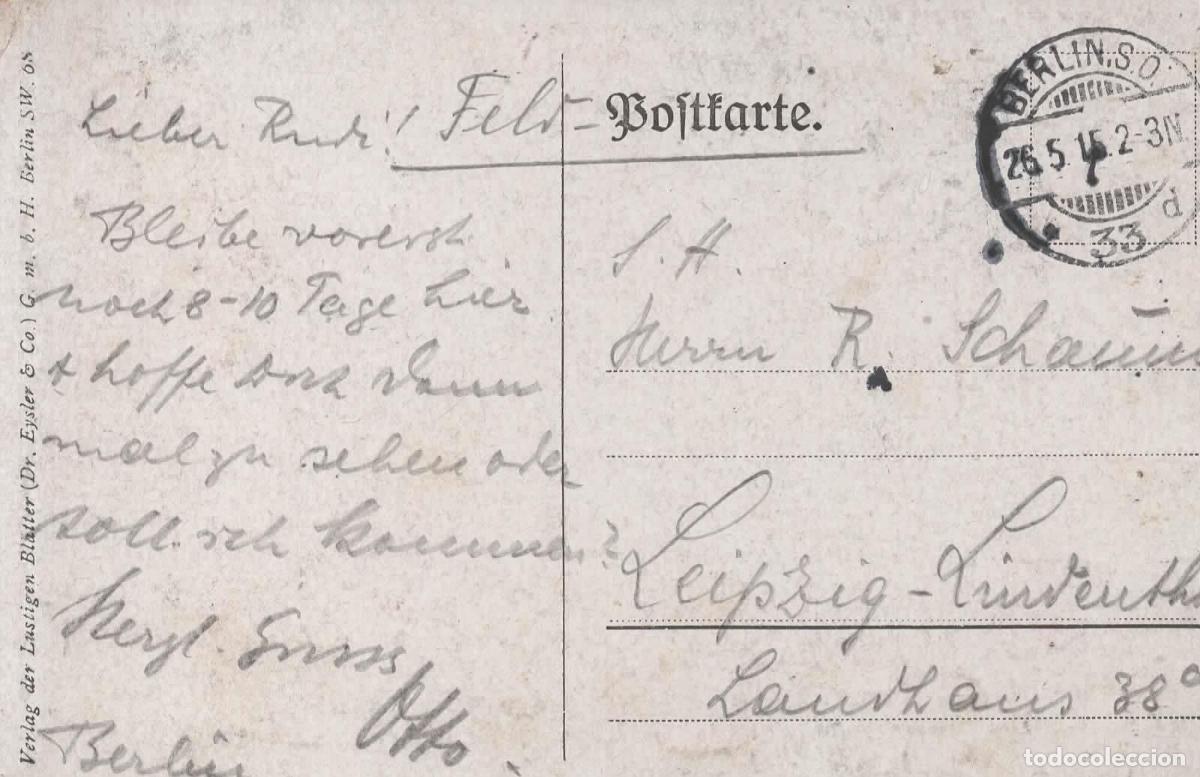 Verlag der Lustigen Blätter (Dr. Eysler & Co.) G. m. b. H. Berlin SW. 68
Lieber Rudi!
Feld-Postkarte.
Bleibe vorerst
noch 8-10 Tage hier
& hoffe Dich dann
mal zu sehen oder
soll ich kommen?
Herzl. Gruss
Otto.
Berlin
BERLIN.S.O.
26.5.15.2-3N
d
* 33
S. H.
Herrn R. Schaum
Leipzig-Lindenth
Landhaus 38
todocoleccion